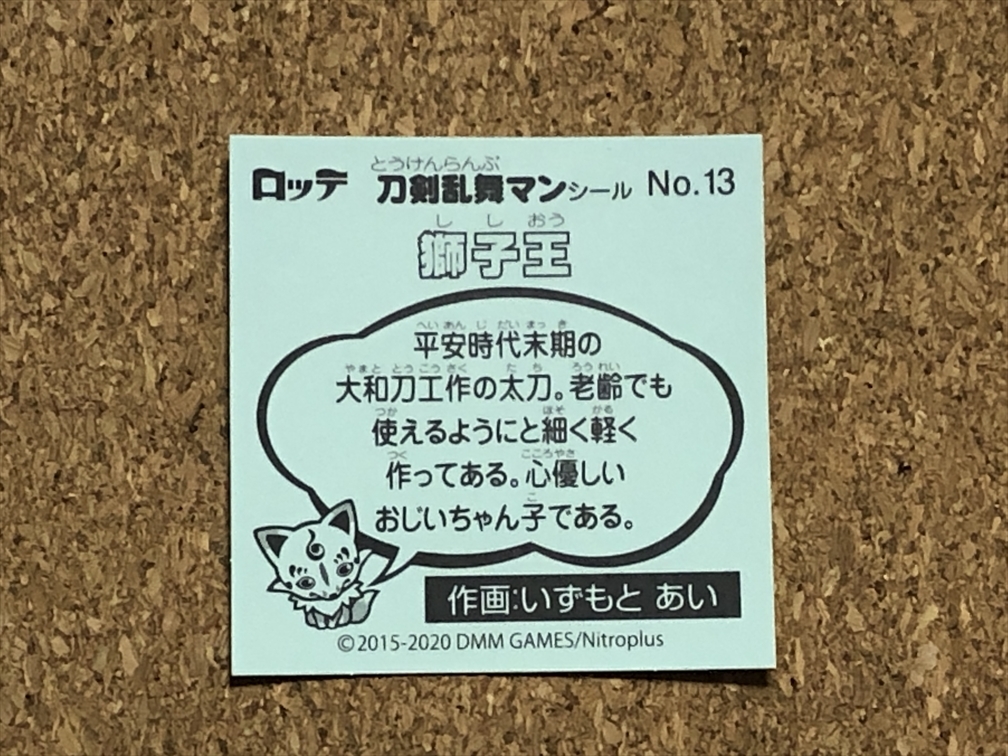 とうけんらんぶ
ロッテ 刀剣乱舞マンシール No.13
し し おう
獅子王
へい あん じ だい まっ き
平安時代末期の
やまと とう こう さく た ち ろう れい
大和刀工作の太刀。老齢でも
つか ほそ かる
使えるようにと細く軽く
つく こころやさ
作ってある。心優しい
こ
おじいちゃん子である。
作画:いずもと あい
©2015-2020 DMM GAMES/Nitroplus